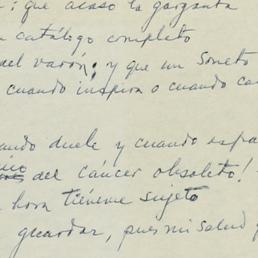 : que acaso la garganta
catálogo completo
del varón; y que un soneto
cuando inspira o cuando ca
ando duele y cuando espa
del cáncer obsoleto!
hora tiéneme sujeto
guardar, pues mi salud